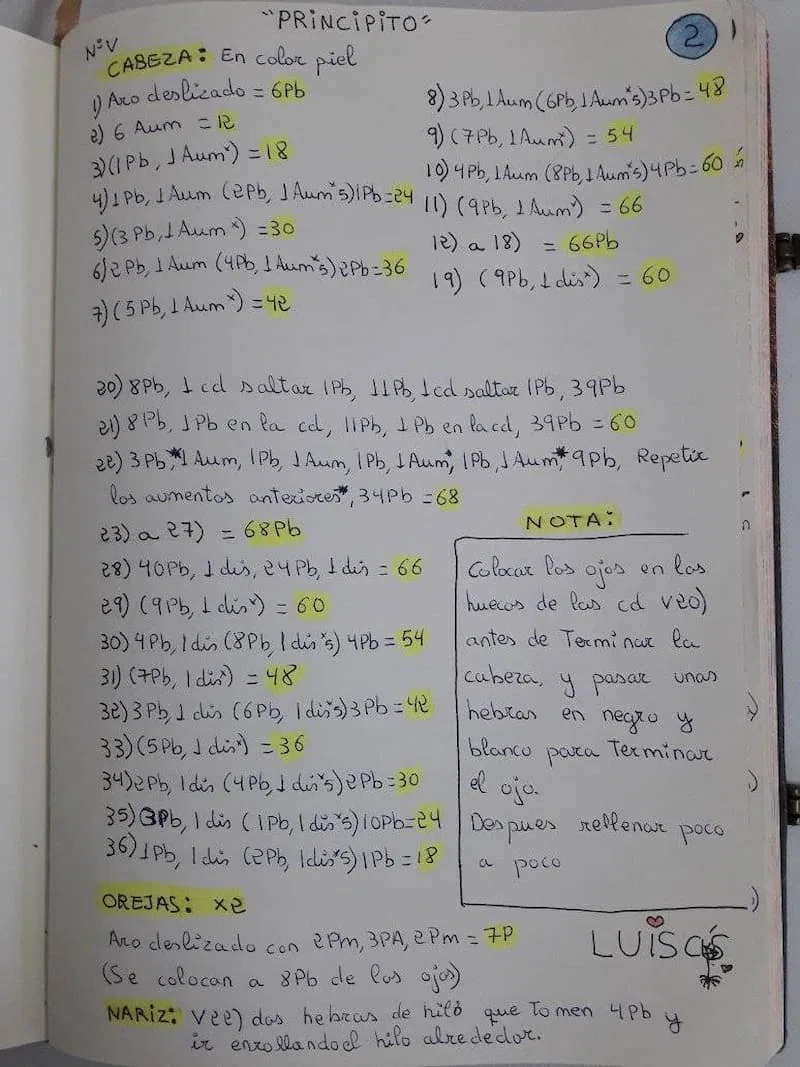 "PRINCIPITO"
2
N:V
CABEZA: En color piel
1) Aro deslizado = 6Pb
2) 6 Aum = 12
3) (1Pb, 1 Aum*) = 18
4) 1Pb, 1 Aum (2Pb, 1 Aum*5) 1Pb = 24
5) (3 Pb, 1 Aum*) = 30
6) 2Pb, 1 Aum (4Pb, 1 Aum*5) 2Pb = 36
7) (5Pb, 1 Aum*) = 42
8) 3Pb, 1 Aum (6Pb, 1 Aum*5) 3Pb = 48
9) (7Pb, 1 Aum*) = 54
10) 4Pb, 1 Aum (8Pb, 1 Aum*5) 4Pb = 60
11) (9Pb, 1 Aum*) = 66
12) a 18) = 66Pb
19) (9Pb, 1 dis*) = 60
20) 8Pb, 1 cd saltar 1Pb, 11Pb, 1cd saltar 1Pb, 39Pb
21) 8Pb, 1Pb en la cd, 11Pb, 1Pb en la cd, 39Pb = 60
22) 3Pb,* 1 Aum, 1Pb, 1 Aum, 1Pb, 1 Aum, 1Pb, 1 Aum,* 9Pb, Repetir
los aumentos anteriores*, 34Pb = 68
23) a 27) = 68Pb
28) 40Pb, 1 dis, 24Pb, 1 dis = 66
29) (9Pb, 1 dis*) = 60
30) 4Pb, 1 dis (8Pb, 1 dis*5) 4Pb = 54
31) (7Pb, 1 dis*) = 48
32) 3Pb, 1 dis (6Pb, 1 dis*5) 3Pb = 42
33) (5Pb, 1 dis*) = 36
34) 2Pb, 1 dis (4Pb, 1 dis*5) 2Pb = 30
35) 3Pb, 1 dis (1Pb, 1 dis*5) 10Pb = 24
36) 1Pb, 1 dis (2Pb, 1 dis*5) 1Pb = 18
NOTA:
Colocar los ojos en los
huecos de las cd V20)
antes de Terminar la
cabeza, y pasar unas
hebras en negro y
blanco para Terminar
el ojo.
Despues rellenar poco
a poco
OREJAS: x2
Aro deslizado con 2Pm, 3PA, 2Pm = 7P
(Se colocan a 8Pb de los ojos)
LUISA
NARIZ: V22) dos hebras de hiló que Tomen 4Pb y
ir enrollando el hilo alrededor.